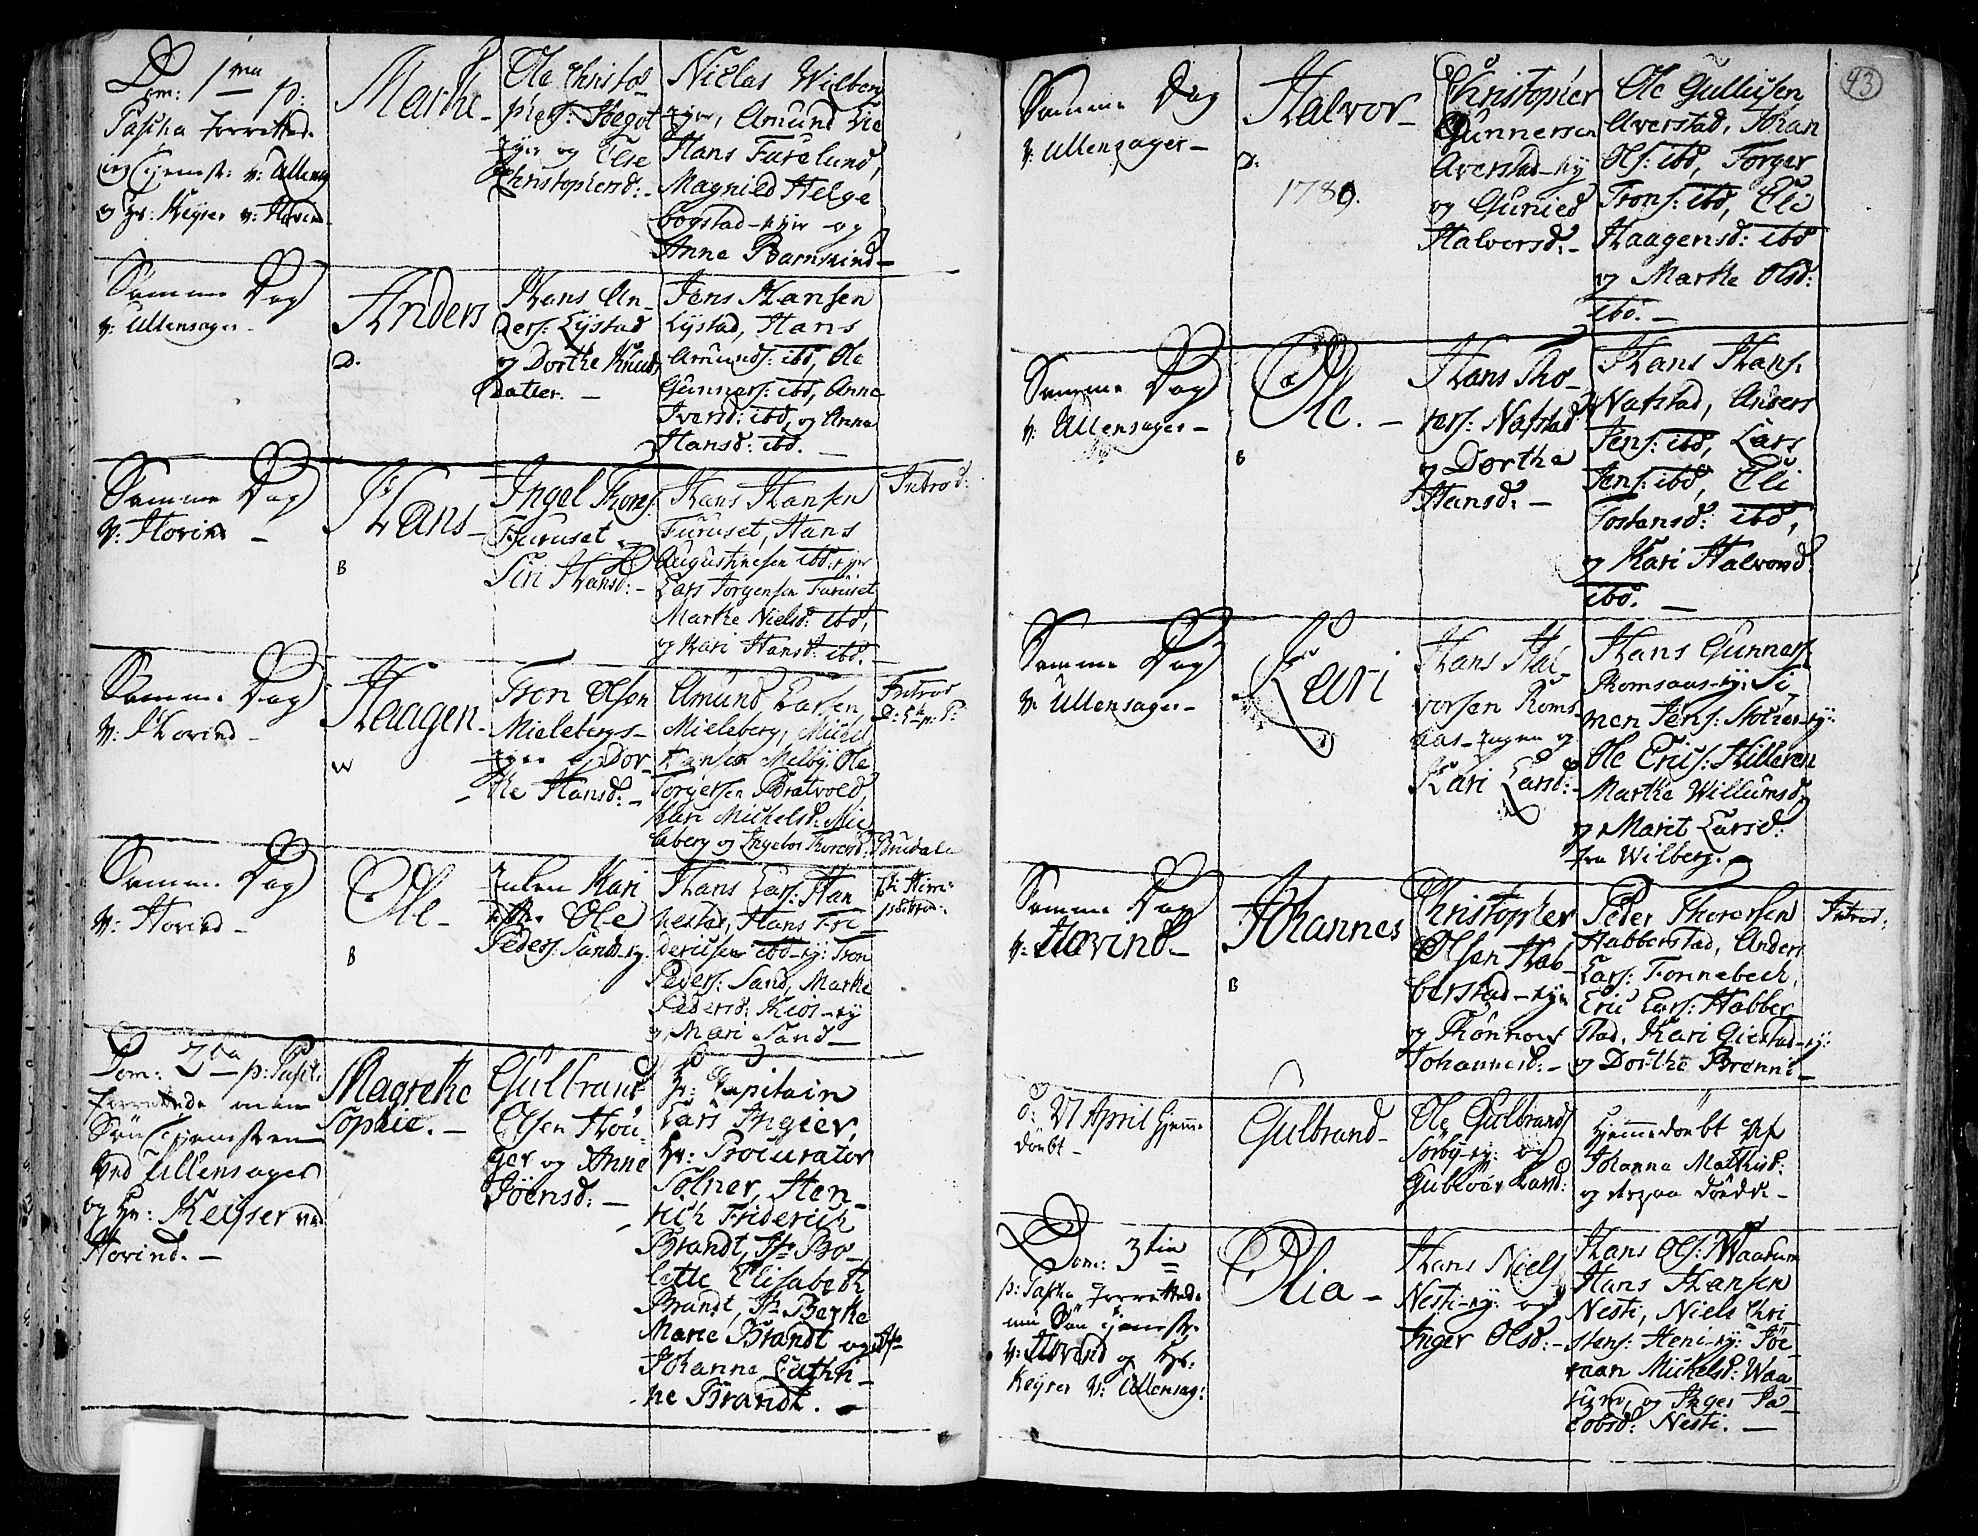 Dom: 1ma p:
Pascha forretted
v: Ullens
og Hr: Keyser v: Hovind
Marthe
Ole Christo-
phers: Hegot
eyer og Else
Christophersd: -
Niclas Wilberg
eyer, Amund Lie
Hans Furelund,
Magnild Helge
bogstad-eyer og
Anne Barnskind -
Samme Dag
v: Ullensager -
Anders
D.
Hans An-
ders: Lystad
og Dorthe Knuds
datter. -
Jens Hansen
Lystad, Hans
Amunds: ibd, Ole
Gunners: ibd, Anne
Iversd: ibd, og Anna
Hansd: ibd. -
Samme Dag
v: Hovind -
Hans -
B
Ingel Trons:
Furuset og
Siri Hansd: -
Hans Hansen
Furuset, Hans
Augustinesen ibd: eyer
Lars Torgensen Furuset
Marthe Nielsd: ibd,
og Kari Hansd: ibd. -
Introd:
Samme Dag
v: Hovind -
Haagen -
W
Tron Olsen
Mielebergs-
eyer og Dor-
the Hansd: -
Amund Larsen
Mieleberg, Michel
Hansen Melby, Ole
Torgersen Bratvold
Kari Michelsd: Mie
leberg og Ingebor Thoresd:
Introd
D: 5te p: P:
Samme Dag
v: Hovind -
Ole -
B
Kari
Ole
Peders: Sand-ey.
Hans Lars: Han
nestad, Hans Fri-
derichsen ibd-ey: Tron
Peders: Sand, Marthe
Pedersd: Kios-ey
og Mari Sand -
Brudale
Dom: 2da p: Pasch:
forrettede
Søn Tjenesten
ved Ullensager
og Hr: Keyser ved
Hovind. -
Magrethe
Sophie. -
Gulbrand
Olsen Hou-
ger og Anne
Joensd: -
Hr Capitain
Lars Ingier,
Hr: Procurator
Tolner, Hen-
rich Friderich
Brandt, Jfr Bo-
lette Elisabeth
Brandt, Jfr Berthe
Marie Brandt og Jfr
Johanna Cathri-
ne Brandt. -
43
Samme Dag
v: Ullensager -
Halvor -
D.
1789.
Christopher
Gunnersen
Averstad-ey
og Gunied
Halvorsd: -
Ole Gulliksen
Averstad, Johan
Ols: ibd, Torger
Trons: ibd, Eli
Haagensd: ibd
og Marthe Olsd:
ibd. -
Samme Dag
v: Ullensager -
Ole. -
B
Hans Tho-
ers: Nafstad
og Dorthe
Hansd: -
Hans Hans:
Nafstad, Anders
Jens: ibd, Lars
Jens: ibd, Eli
Tostensd: ibd,
og Kari Halvorsd:
ibd. -
Samme Dag
v: Ullensager -
Kari
Hans Hal-
vorsen Roms-
aas-eygen og
Kari Larsd: -
Hans Gunners:
Romsaas-ey: Si-
men Jens: Stolter-ey:
Ole Erics: Hilleren
Marthe Willumsd:
og Marit Larsd:
fra Wilberg. -
Samme Dag
v: Hovind -
Johannes
B
Christopher
Olsen Hab-
berstad-eye
og Rønnov
Johannesd: -
Peder Thorersen
Habberstad, Anders
Lars: Tonnebech,
Eric Lars: Habber
stad, Kari Gierstad-ey:
og Dorthe Brenni -
Introd:
d: 27 April hjemme
døbt -
Gulbrand -
Ole Gulbrands:
Sørby-ey: og
Gublaar Larsd:
Hjemmedøbt af
Johanna Mathisd:
og strax døde -
Dom: 3tia
p: Pascha forrettede
v: Hovind og Hr:
Keyser v: Ullensag:
Olia -
Hans Niels:
Nesti-ey: og
Inger Olsd: -
Hans Ols: Waarum
Hans Hansen
Nesti, Niels Chri-
stens: Heni-ey: Joe-
raan Michelsd: Waa
rum, og Inger Ja-
cobsd: Nesti. -